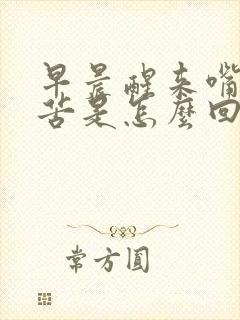 早晨醒来嘴
苦是怎麼回
常方圓